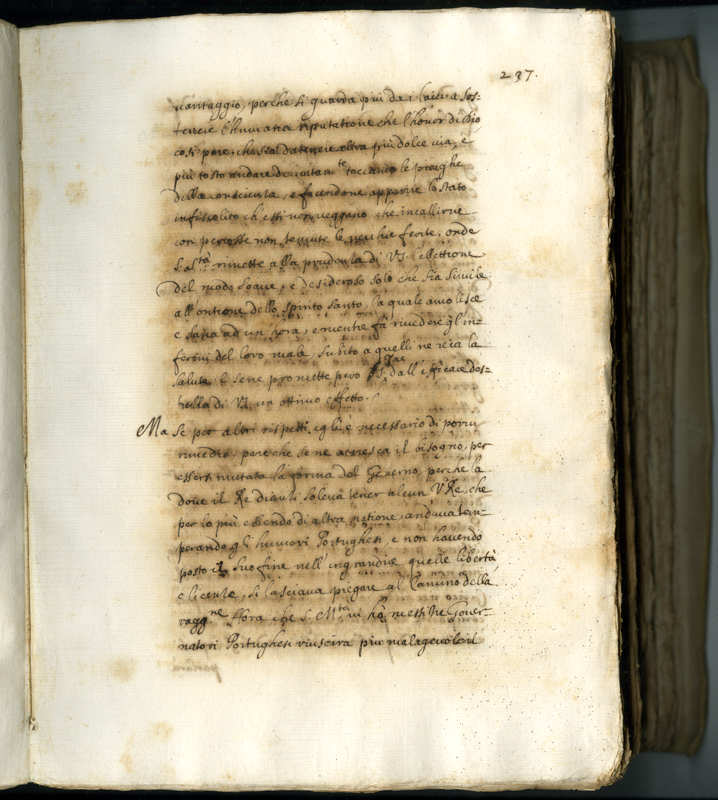 237.
vantaggio, perche si guarda piu da i laici a sos=
tenere l'humana riputatione che l'honor di Dio
così pare, che sia da tenere altra più dolce via, e
più tosto andare delicatam.te toccando le pieghe
della conscienza, e facendone apparire lo stato
infistolito ch'essi non veggano che incallirne
con percosse non temute le vecchie ferite, onde
S. S.tà rimette alla prudenza di VS. l'elettione
del modo soave, e desideroso solo che sia simile
all'ontione dello Spirito Santo, la quale amollisce
e sana ad un'hora, e mentre fà rivedere gl'in=
fermi del loro male, subito a quelli ne reca la
salute, e sene promette pero dall'efficace des=
trezza di VS. un ottimo effetto.
Ma se per altri rispetti egli è necessario di porvi
rimedio, pare che se ne accresca il bisogno, per
essersi mutata la forma del Governo, perche la
dove il Re dianzi soleva tener alcun V Re, che
per lo più essendo di altra natione, andava tem=
perando gli humori Portughesi, e non havendo
posto il suo fine nell'ingrandire quelle libertà
e licenze, si lasciava piegare al camino della
ragg.ne Hora che S. M.tà vi hà messi tre Gover=
natori Portughesi riuscirà piu malagevole il